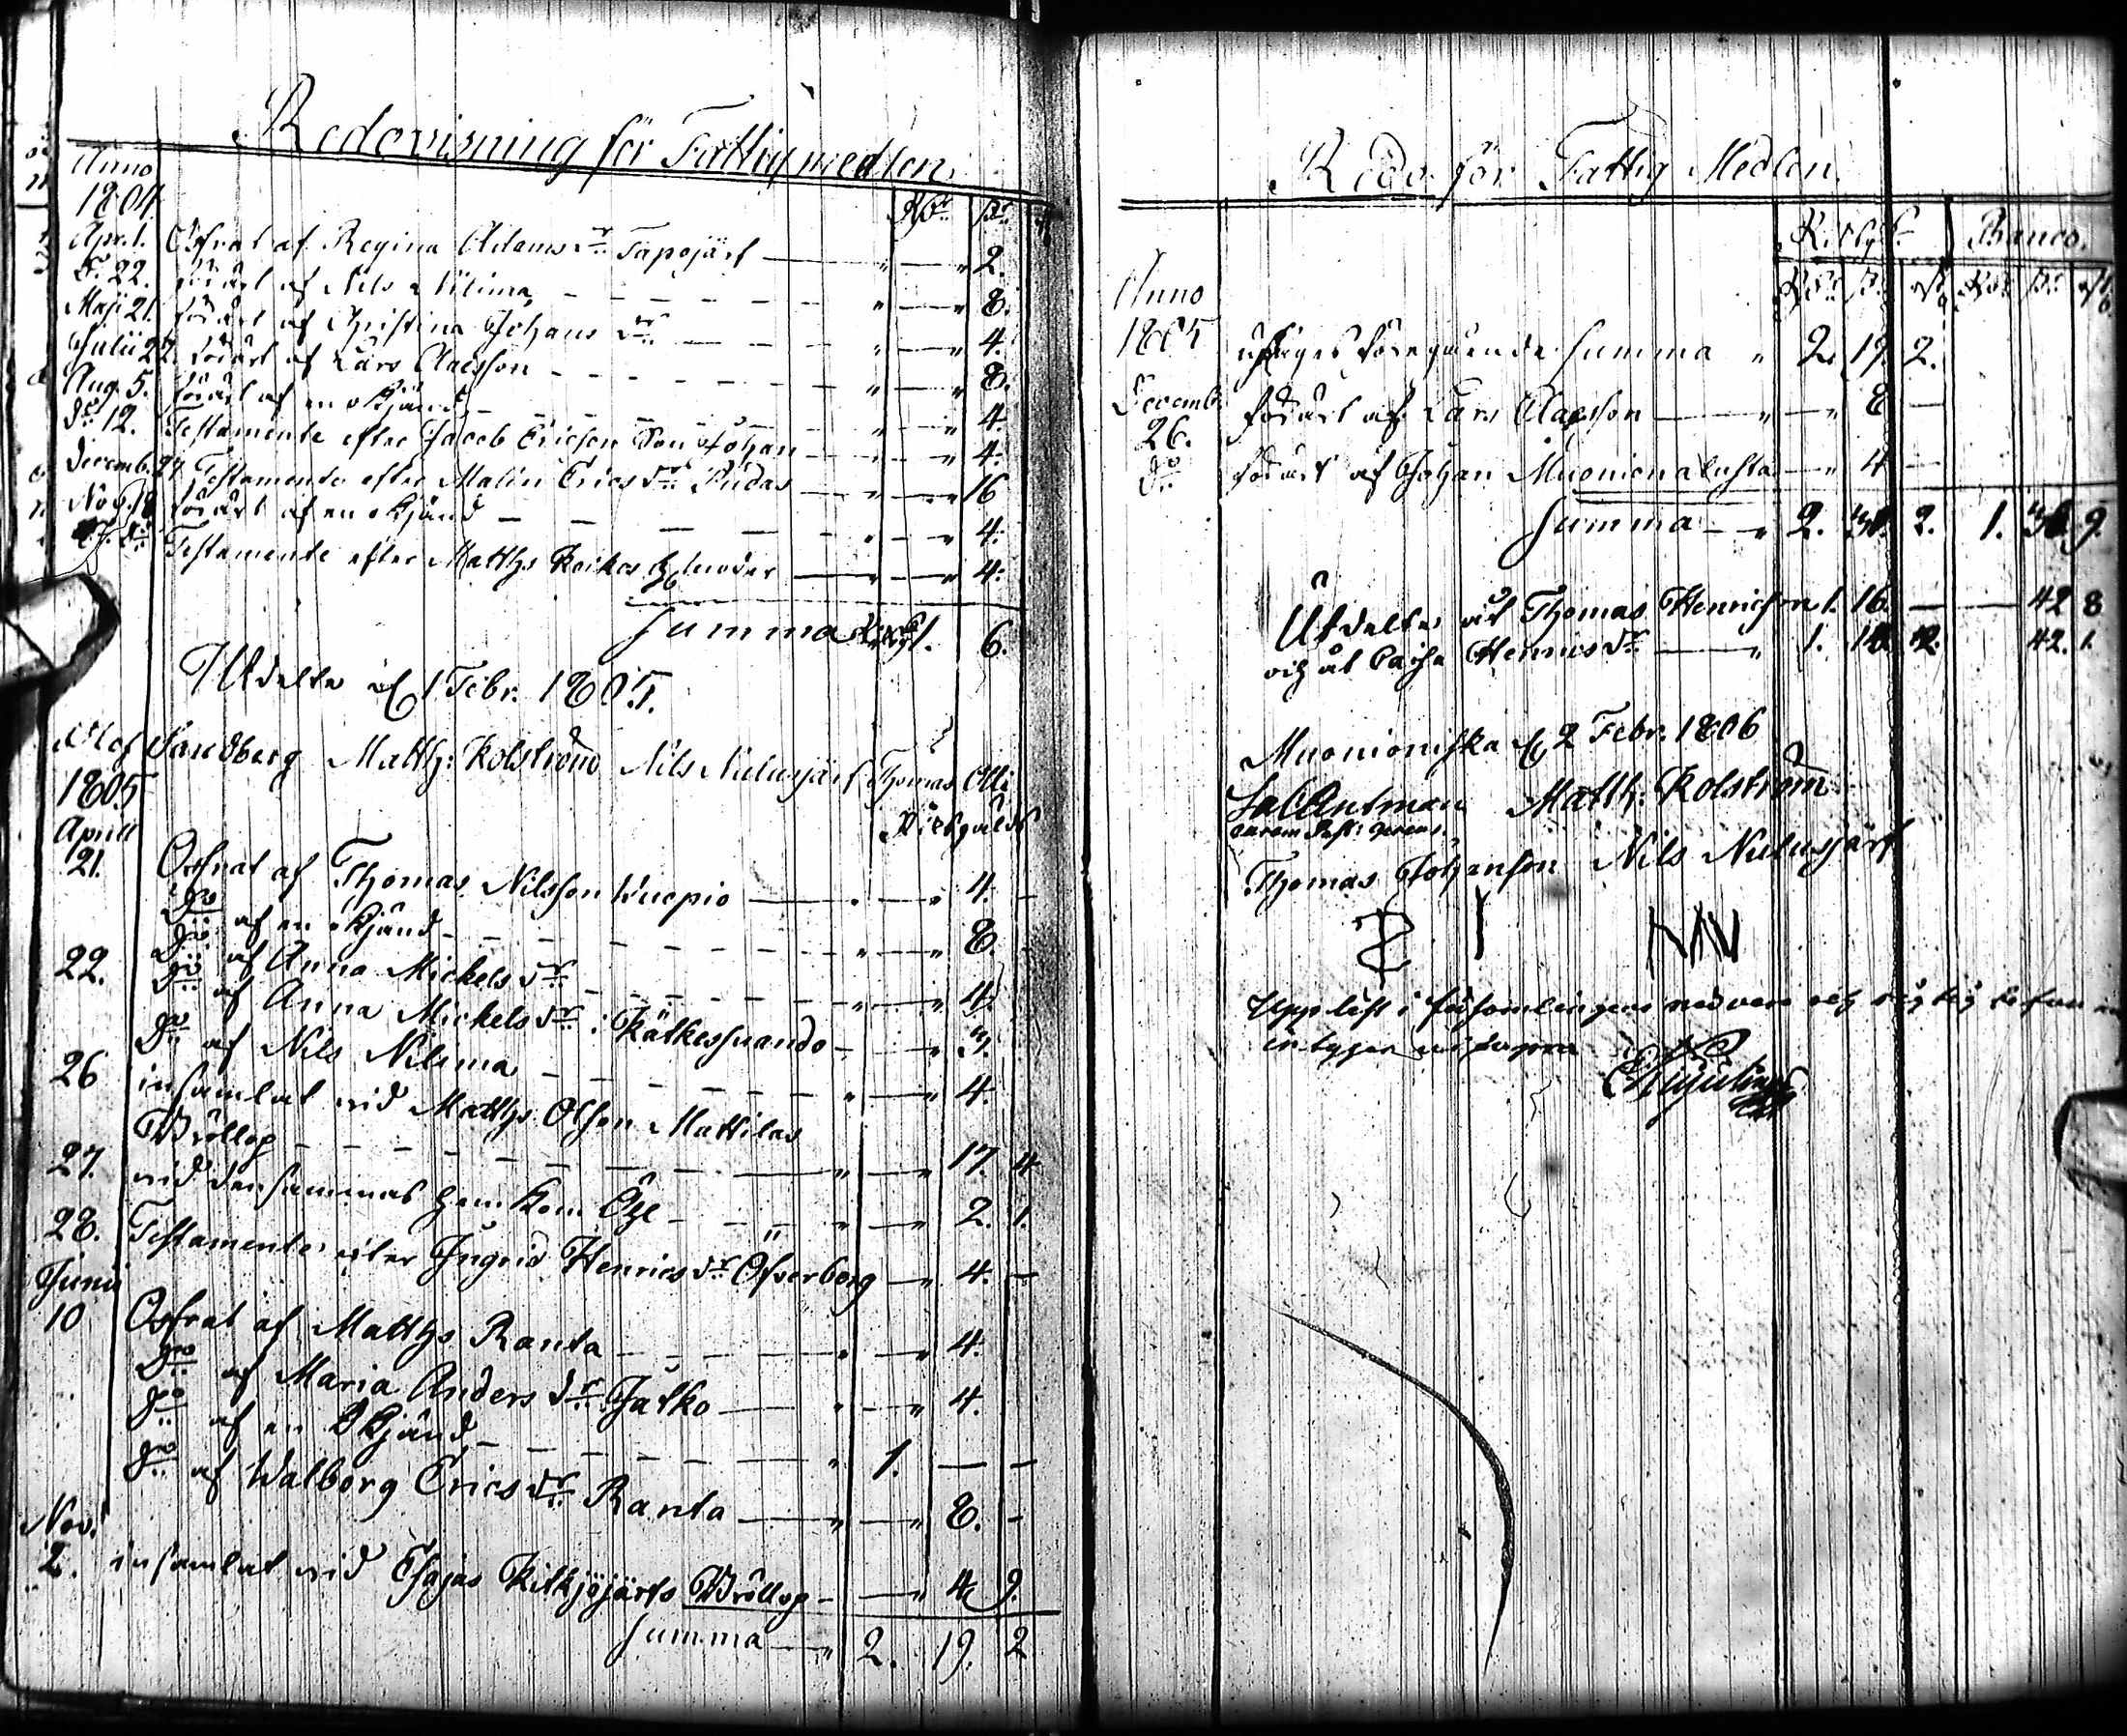 Redovisning för Fattigmedlen.
Anno
1804 Rdr sk
Apr. 1. Offrat af Regina Adams dr Täpojärf — 2.
D: 22. förärt af Nils Nilima — 8.
Maji 21. förärt af Christina Johans dr — 4.
Julii 22. förärt af Lars Claesson — 8.
Aug. 5. förärt af en okjänd — 4.
do 12. Testamente efter Jacob Ericson Son Johan — 4.
Decemb. 24 Testamente efter Malin Erics dr Rudas — 16
Nov. 18 förärt af en okjänd — 4.
do Testamente efter Matths Keikes moder — 4.
Summa 1. 6.
Utdelte d. 1 Febr. 1805.
Olof Sandberg Matth: Kolström Nils Nulusjärf Thomas Olli
1805 Riksgälds
Aprill
21. Offrat af Thomas Nilsson Wuopio — 4. —
do af en okjänd — 8. —
do af Anna Mickels dr — 4.
22. do af Anna Mickels dr i Kätkessuando — 3.
do af Nils Nilima — 4.
26 insamlat vid Matths Olsson Mattilas
Bröllop — 17. 4
27. vid den sammas hemkom Öhl — 2. 1.
28. Testamente efter Ingrid Henrics dr Öfverberg — 4. —
Junii
10 Offrat af Matths Ranta — 4.
do af Maria Anders dr Jatko — 4.
do af en okjänd — 1. — —
do af Walborg Erics dr Ranta — 8. —
Nov.
2. insamlat vid Esajas Kitkjöjärfs Bröllop — 4. 9.
Summa — 2. 19. 2
Redo. för Fattig Medlen.
R.Gds. Banco.
Anno
1805 föregående Summa 2. 19. 2.
Decemb. förärt af Lars Claesson — 8 —
26.
do förärt af Johan Muonionalusta — 4 —
Summa — 2. 31. 2. 1. 36. 9.
Utdeltes åt Thomas Henricson 1. 16. — 42 8
och åt Caisa Henrics dr — 1. 42. 1.
Muonioniska d. 2 Febr. 1806
Matth: Kolström
Thomas Johanson Nils Nulusjärf
NN
Uppläst i församlingens närvaro och riktig befunnen
intygar